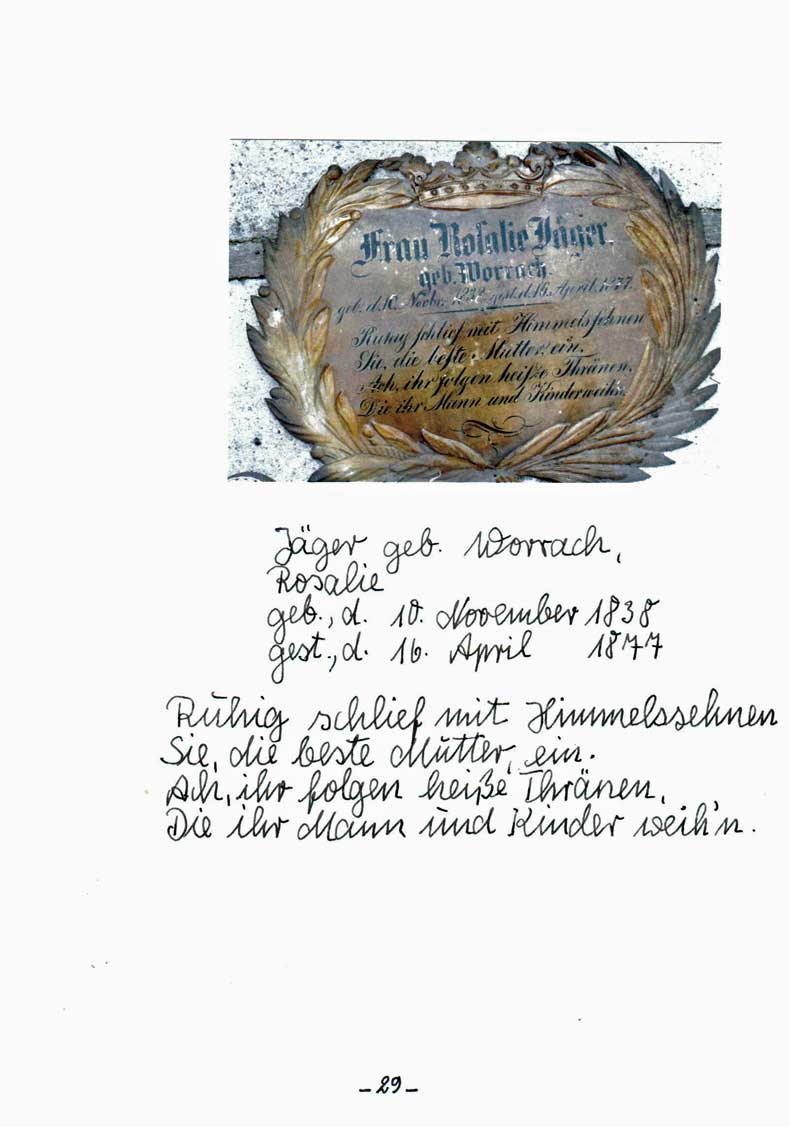 Frau Rosalie Jäger.
geb. Worrach.
geb. d. 10. Novbr. 1838 gest. d. 16. April. 1877.
Ruhig schlief mit Himmelssehnen
Sie, die beste Mutter, ein.
Ach, ihr folgen heiße Thränen,
Die ihr Mann und Kinder weih'n.
Jäger geb. Worrach,
Rosalie
geb., d. 10. November 1838
gest., d. 16. April 1877
Ruhig schlief mit Himmelssehnen
Sie, die beste Mutter, ein.
Ach, ihr folgen heiße Thränen,
Die ihr Mann und Kinder weih'n.
- 29 -